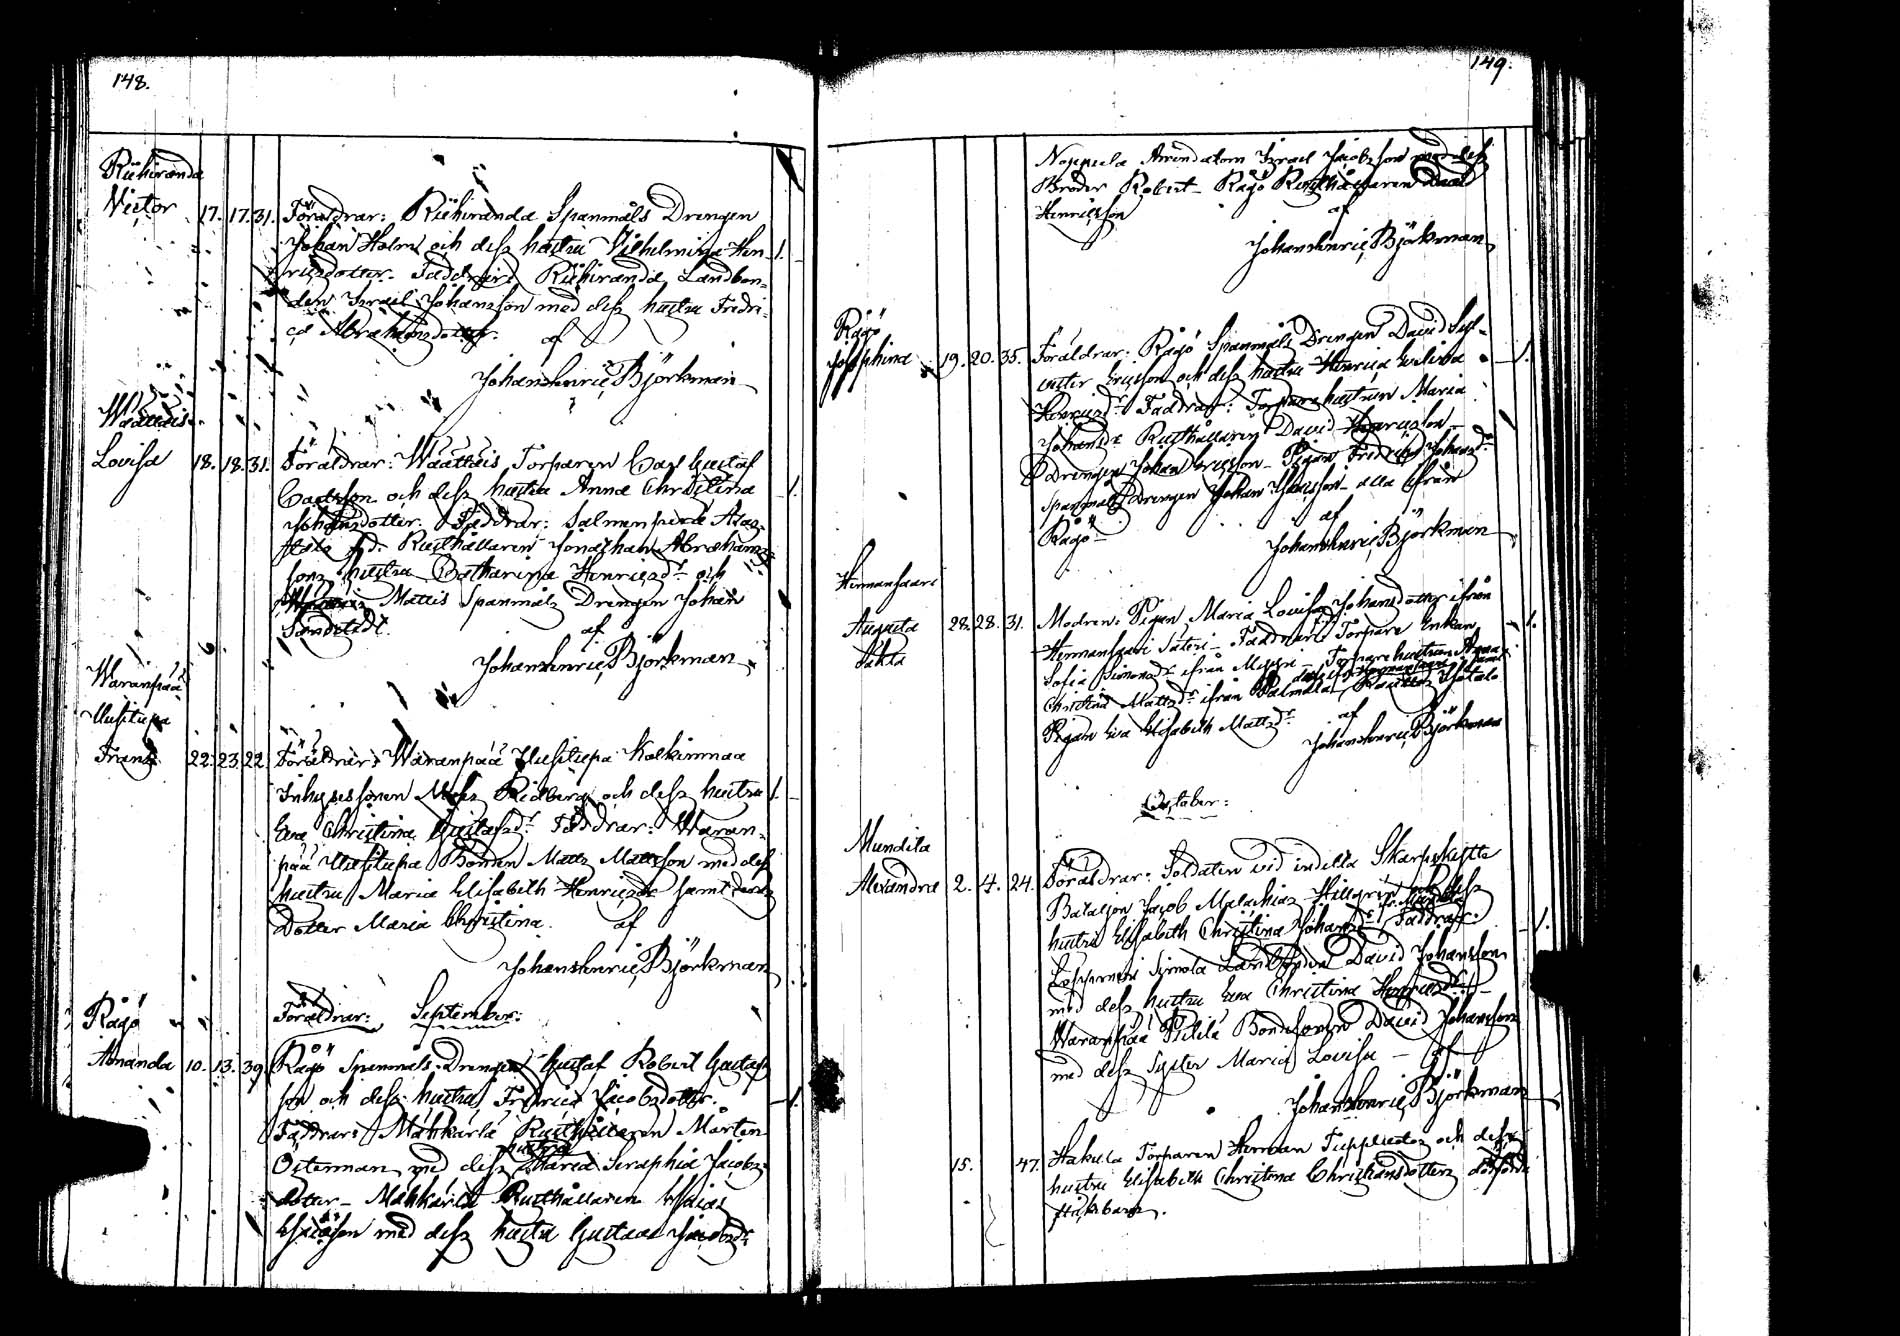 148.
Riihiranda
Victor 17. 17. 31. Föräldrar: Riihiranda Spanmåls Drengen
Johan Holm och dess hustru Vilhelmina Hen- 1.
ricsdotter. Faddrar: Riihiranda Landbon-
den Israel Johansson med dess hustru Fredri-
ca Abrahamsdotter. af
Johan Henric Björkman
Wäättäis
Lovisa 18. 18. 31. Föräldrar: Wäättäis Torparen Carl Gustaf
Carlsson och dess hustru Anna Christina 1.
Johansdotter. Faddrar: Salmenperä
Rusthållaren Jonathan Abrahams-
sons hustru Catharina Henricsdr och
Mattis Spanmåls Drengen Johan
Sandstedt. af
Johan Henric Björkman
Waranpää
Uusitupa
Frans 22. 23. 22. Föräldrar: Waranpää Uusitupa Kalkinmaa
Inhysessonen Mats Ridberg och dess hustru 1.
Eva Christina Gustafsdr. Faddrar: Waran-
pää Uusitupa Bonden Matts Mattsson med dess
hustru Maria Elisabeth Henricsdr samt deras
Dotter Maria Christina. af
Johan Henric Björkman
Föräldrar: September:
Rågö
Amanda 10. 13. 39. Rågö Spanmåls Drengen Gustaf Robert Gustafs-
son och dess hustru Fredrica Jacobsdotter. 1.
Faddrar: Mähkärlä Rusthållaren Mårten
Österman med dess hustru Maria Seraphia Jacobs-
dotter - Mähkärlä Rusthållaren Esaias
Esaiasson med dess hustru Gustava Jacobsdr
149.
Noppula Arrendatorn Israel Jacobsson med dess
Broder Robert - Rågö Rusthållaren
Henricsson af
Johan Henric Björkman
Rågö
Josephina 19. 20. 35. Föräldrar: Rågö Spanmåls Drengen David Syl-
vester Ericsson och dess hustru Henrica Evelina 1.
Henricsdr Faddrar: Torpare hustrun Maria
Johansdr Rusthållaren David Henricsson -
Drengen Johan Ericsson - Pigan Fredrica Johansdr
Spanmåls Drengen Johan - alla ifrån
Rågö - af
Johan Henric Björkman
Hermansaari
Augusta 28. 28. 31. Modren: Pigan Maria Lovisa Johansdotter ifrån 1.
Hermansaari Säteri - Faddrar: Torpare Enkan
Sofia Simonsdr ifrån - Torpare hustrun Anna
Christina Mattsdr ifrån Palmala
Pigan Lisa Elisabeth Mattsdr af
Johan Henric Björkman
October:
Mundila
Alexandra 2. 4. 24. Föräldrar: Soldaten vid indelta Skarpskytte
Bataljon Jacob Malachias och dess
hustru Elisabeth Christina Johansdr fr. Mundila Faddrar: 1.
Simola Landbonden David Johansson
med dess hustru Eva Christina Henricsdr -
Waranpää Pietilä Bondesonen David Johansson
med dess Syster Maria Lovisa - af
Johan Henric Björkman
15. 47. Hakula Torparen Herman och dess
hustru Elisabeth Christina Christiansdotters dödfödda
flickebarn.